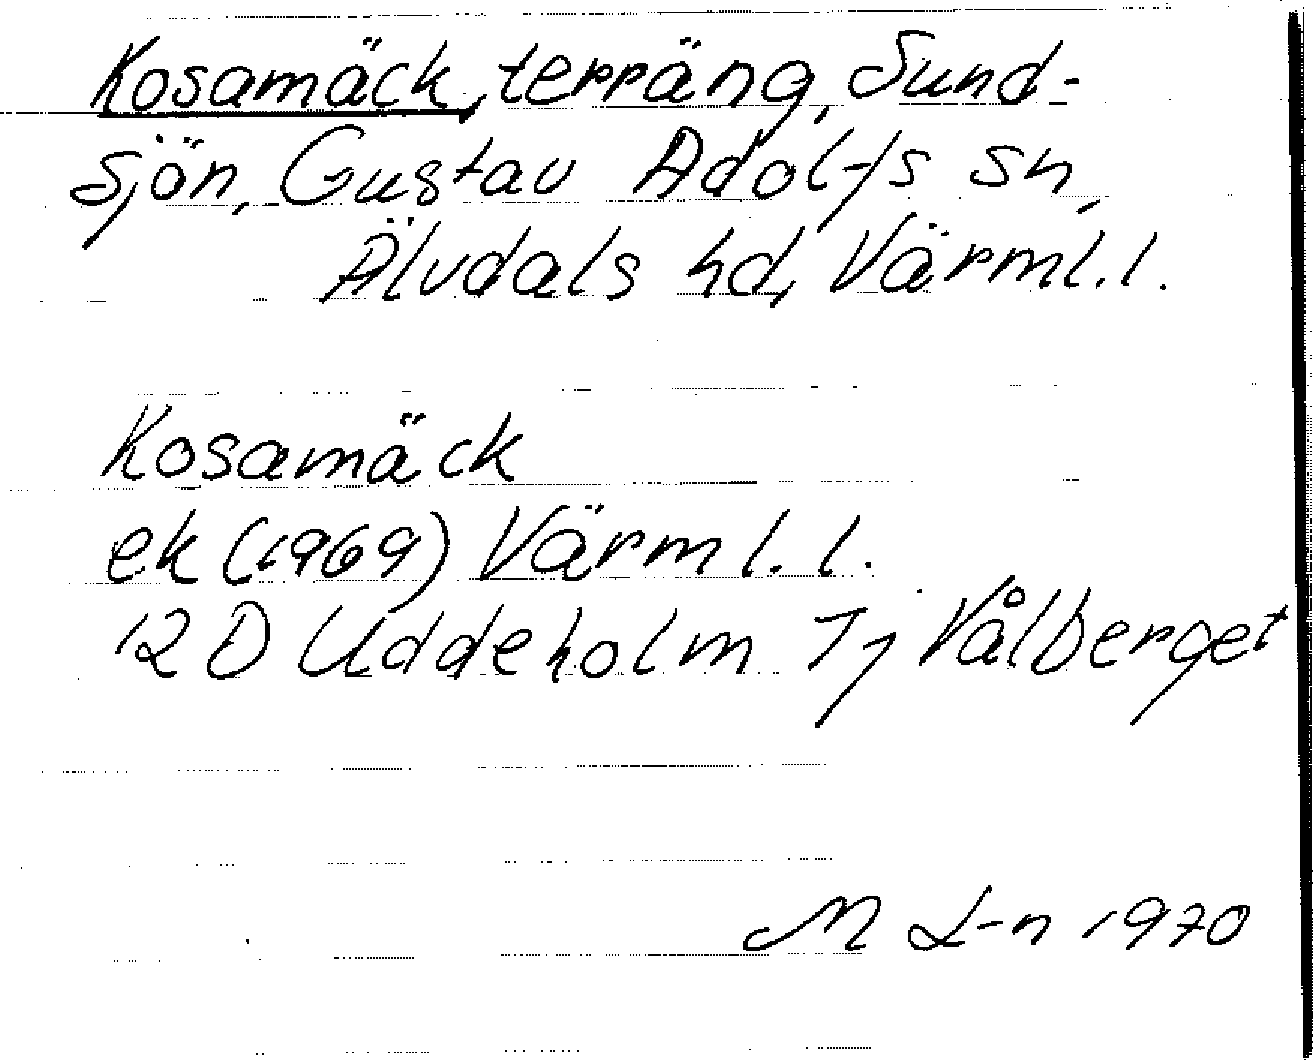 Kosamäck, terräng, Sund-
sjön, Gustav Adolfs sn,
Älvdals hd, Värml. l.
Kosamäck
ek (1969) Värml. l.
12 D Uddeholm 7j Vålberget
M L-n 1970